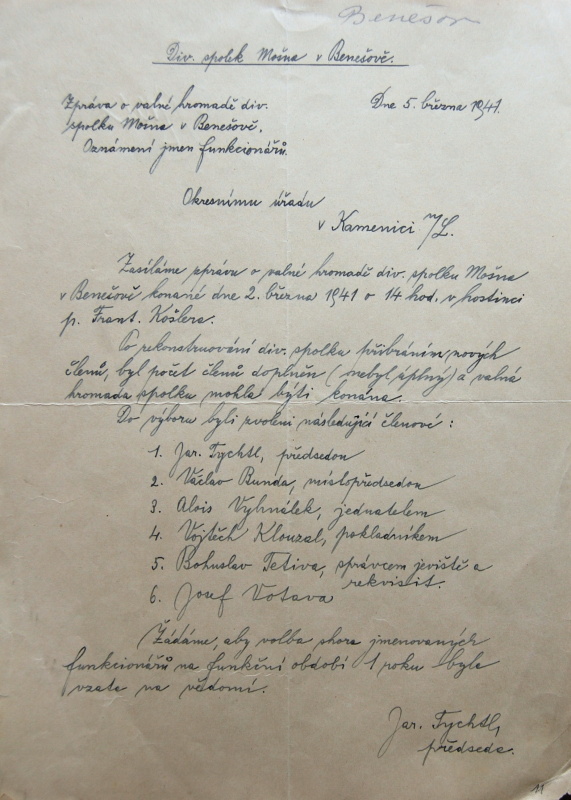 Benešov
Div. spolek Mošna v Benešově.
Zpráva o valné hromadě div.
spolku Mošna v Benešově.
Oznámení jmen funkcionářů.
Dne 5. března 1941.
Okresnímu úřadu
v Kamenici n/L.
Zasíláme zprávu o valné hromadě div. spolku Mošna
v Benešově konané dne 2. března 1941 o 14 hod. v hostinci
p. Frant. Košlera.
Po rekonstruování div. spolku přibráním nových
členů, byl počet členů doplněn (nebyl úplný) a valná
hromada spolku mohla býti konána.
Do výboru byli zvoleni následující členové:
1. Jar. Tychtl, předsedou
2. Václav Bunda, místopředsedou
3. Alois Vyhnálek, jednatelem
4. Vojtěch Klouzal, pokladníkem
5. Bohuslav Tetiva, správcem jeviště a
rekvisit.
6. Josef Votava
Žádáme, aby volba shora jmenovaných
funkcionářů na funkční období 1 roku byla
vzata na vědomí.
Jar. Tychtl,
předseda.
11